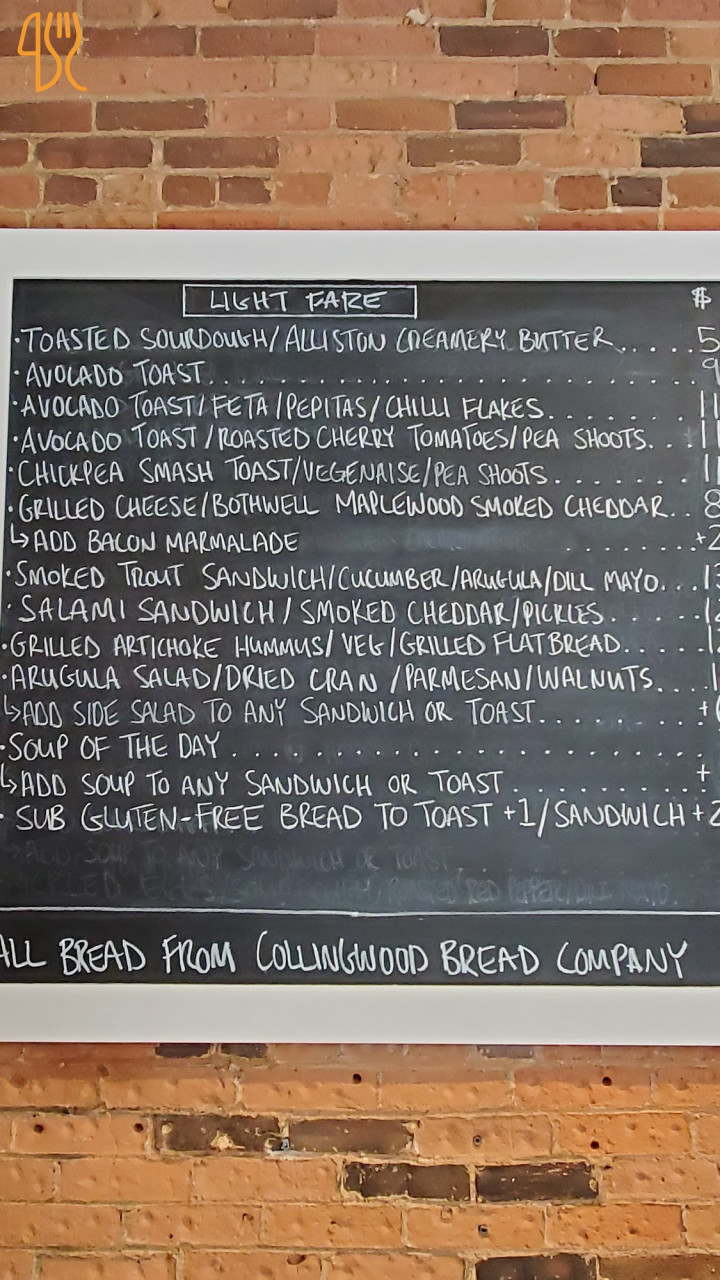 LIGHT FARE $
·TOASTED SOURDOUGH/ALLISTON CREAMERY BUTTER..... 5
·AVOCADO TOAST................................ 9
·AVOCADO TOAST/FETA/PEPITAS/CHILLI FLAKES....... 11
·AVOCADO TOAST/ROASTED CHERRY TOMATOES/PEA SHOOTS... 11
·CHICKPEA SMASH TOAST/VEGENAISE/PEA SHOOTS........ 11
·GRILLED CHEESE/BOTHWELL MAPLEWOOD SMOKED CHEDDAR.. 8
↳ADD BACON MARMALADE ........+2
·SMOKED TROUT SANDWICH/CUCUMBER/ARUGULA/DILL MAYO...
·SALAMI SANDWICH/SMOKED CHEDDAR/PICKLES......
·GRILLED ARTICHOKE HUMMUS/VEG/GRILLED FLATBREAD.....
·ARUGULA SALAD/DRIED CRAN/PARMESAN/WALNUTS....
↳ADD SIDE SALAD TO ANY SANDWICH OR TOAST......... +
·SOUP OF THE DAY..........................
↳ADD SOUP TO ANY SANDWICH OR TOAST........... +
·SUB GLUTEN-FREE BREAD TO TOAST +1/SANDWICH +2
ALL BREAD FROM COLLINGWOOD BREAD COMPANY